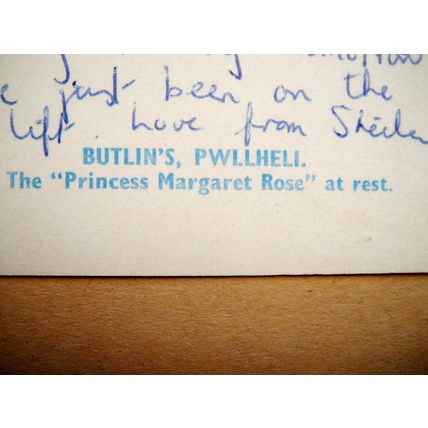 tomorrow
just been on the
lift. Love from Sheila
BUTLIN'S, PWLLHELI.
The "Princess Margaret Rose" at rest.